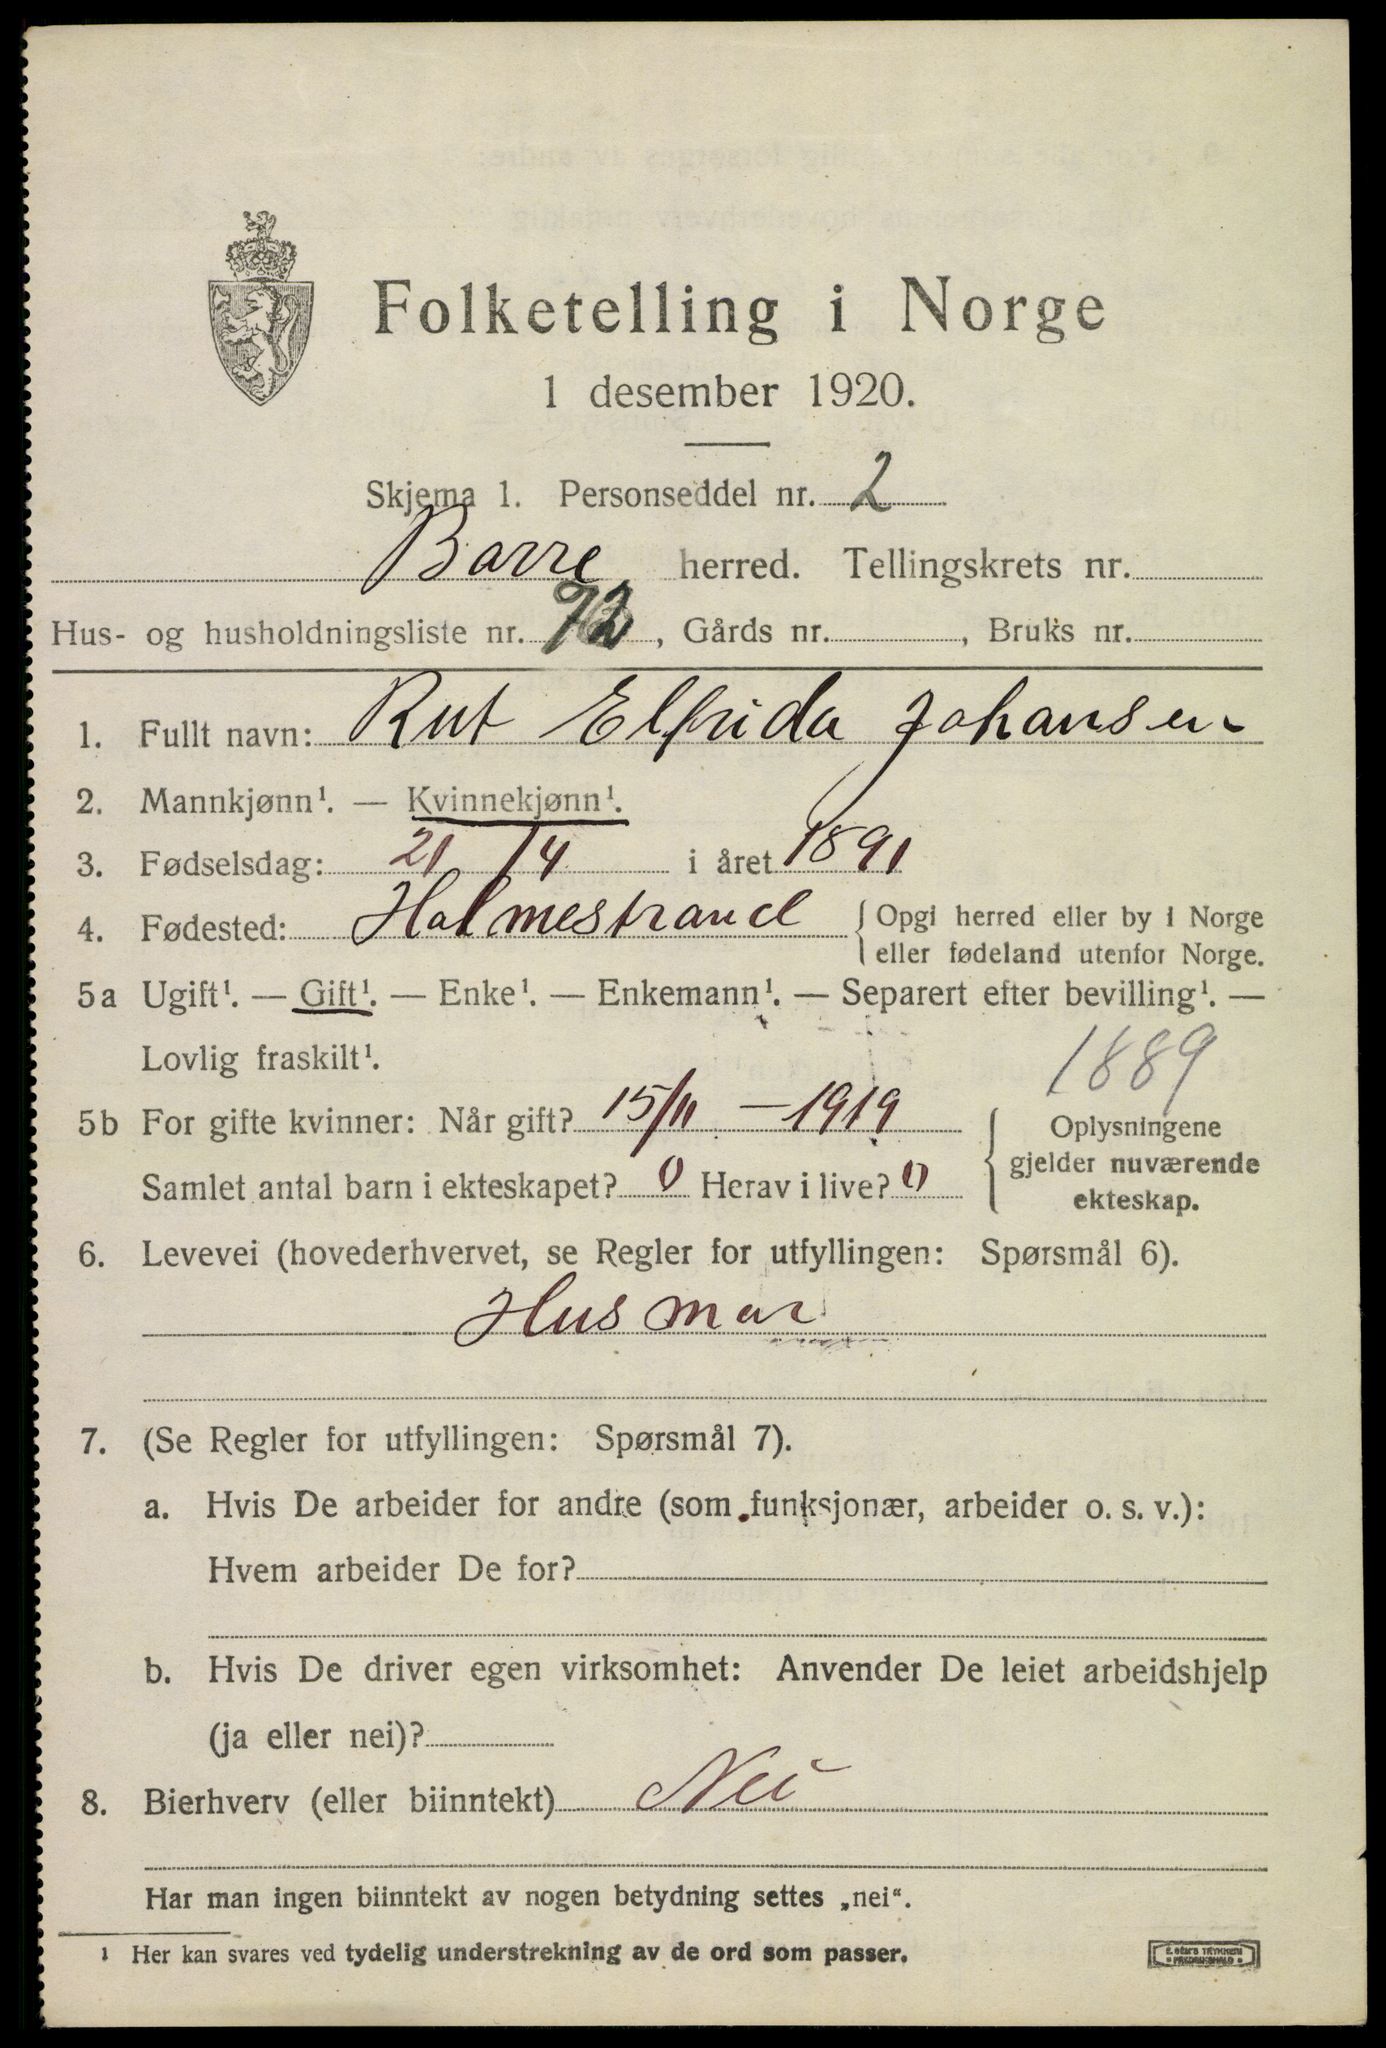 Folketelling i Norge
1 desember 1920.
Skjema 1. Personseddel nr. 2
Barre herred. Tellingskrets nr.
Hus- og husholdningsliste nr. 72, Gårds nr. , Bruks nr.
1. Fullt navn: Rut Elfrida Johansen
2. Mannkjønn¹. — Kvinnekjønn¹.
3. Fødselsdag: 21/4 i året 1891
4. Fødested: Holmestrand { Opgi herred eller by i Norge
eller fødeland utenfor Norge.
5a Ugift¹. — Gift¹. — Enke¹. — Enkemann¹. — Separert efter bevilling¹. —
Lovlig fraskilt¹.
1889
5b For gifte kvinner: Når gift? 15/11 — 1919
Samlet antal barn i ekteskapet? 0 Herav i live? 0
{ Oplysningene
gjelder nuværende
ekteskap.
6. Levevei (hovederhvervet, se Regler for utfyllingen: Spørsmål 6).
Husmor
7. (Se Regler for utfyllingen: Spørsmål 7).
a. Hvis De arbeider for andre (som funksjonær, arbeider o. s. v.):
Hvem arbeider De for?
b. Hvis De driver egen virksomhet: Anvender De leiet arbeidshjelp
(ja eller nei)?
8. Bierhverv (eller biinntekt) Nei
Har man ingen biinntekt av nogen betydning settes „nei“.
¹ Her kan svares ved tydelig understrekning av de ord som passer.